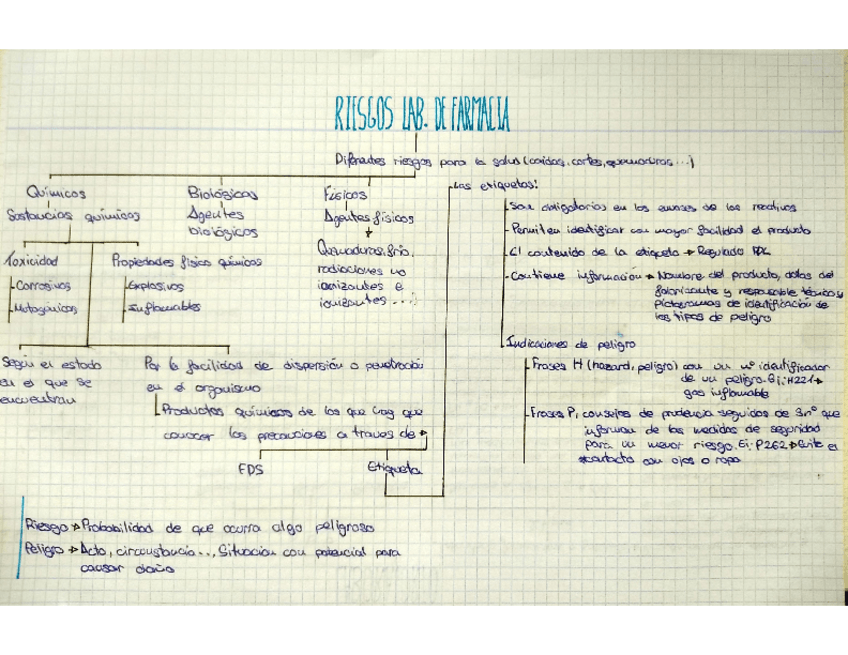 RIESGOS LAB. DE FARMACIA
Diferentes riesgos para la salud (caidas, cortes, quemaduras...)
Químicos
Sustancias químicas
Toxicidad
Corrosivos
Mutagénicos
Propiedades físico químicas
Explosivos
Inflamables
Según el estado
en el que se
encuentran
Por la facilidad de dispersión o penetración
en el organismo
Productos químicos de los que hay que
conocer las precauciones a traves de
FDS
Etiqueta
Biológicos
Agentes
biológicos
Físicos
Agentes físicos
Quemaduras, frio,
radiaciones no
ionizantes e
ionizantes...
Las etiquetas:
Son obligatorias en los envases de los reactivos
Permiten identificar con mayor facilidad el producto
El contenido de la etiqueta → Regulado
Contiene información → Nombre del producto, datos del
fabricante y responsable técnico y
pictogramas de identificación de
los tipos de peligro
Indicaciones de peligro
Frases H (hazard, peligro) con un nº identificador
de un peligro. Ej: H221→
gas inflamable
Frases P, consejos de prudencia seguidos de 3 nº que
informan de las medidas de seguridad
para un menor riesgo. Ej: P262→ Evite el
contacto con ojos o ropa
Riesgo → Probabilidad de que ocurra algo peligroso
Peligro → Acto, circunstancia..., Situacion con potencial para
causar daño